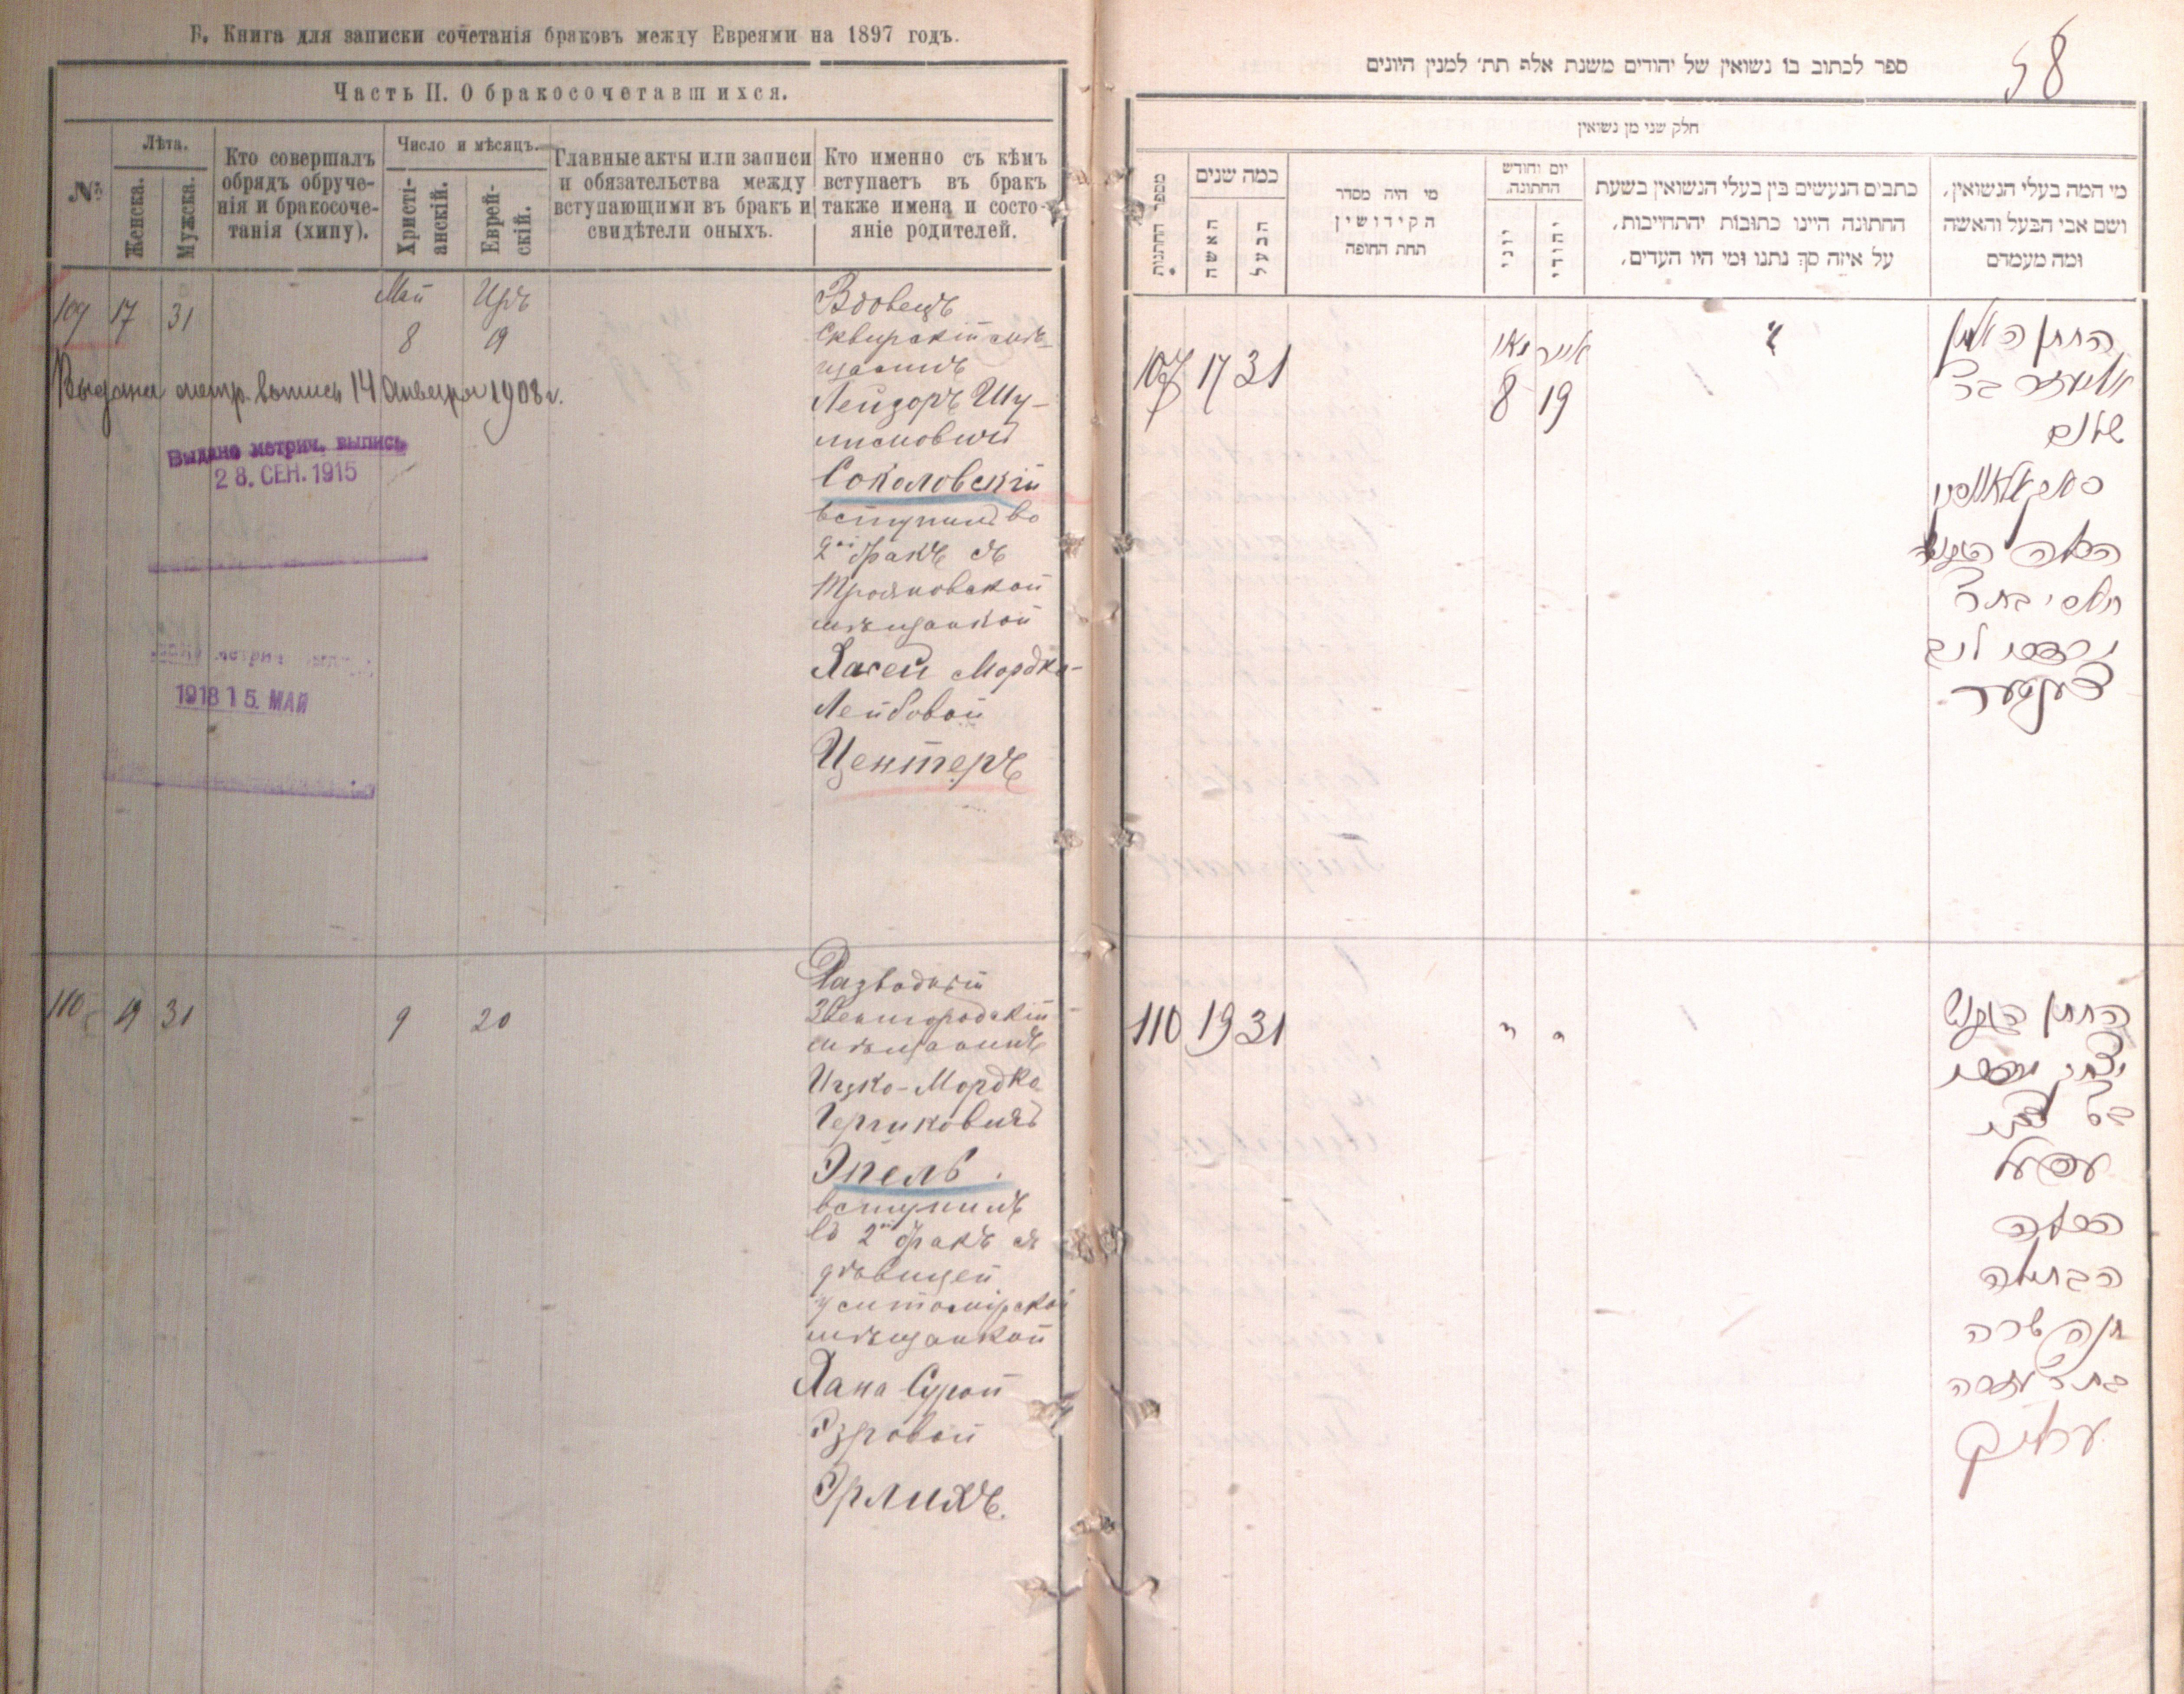 Б. Книга для записки сочетанія браковъ между Евреями на 1897 годъ.
Часть II. О бракосочетавшихся.
№
Лѣта.
Женска.
Мужска.
Кто совершалъ
обрядъ обруче-
нія и бракосоче-
танія (хипу).
Число и мѣсяцъ.
Христі-
анскій.
Еврей-
скій.
Главные акты или записи
и обязательства между
вступающими въ бракъ и
свидѣтели оныхъ.
Кто именно съ кѣмъ
вступаетъ въ бракъ
также имена и состо-
яніе родителей.
109 17 31
Май
8
Иръ
19
Выдана метр. выпись 14 Января 1908 г.
Выдано метрич. выпись
28. СЕН. 1915
1918 15. МАЙ
Вдовецъ
Сквирскій мѣ-
щанинъ
Лейзоръ Шу-
лимовичъ
Соколовскій
вступилъ во
2й бракъ съ
Трояновской
мѣщанкой
Хасей Мордко-
Лейбовой
Центеръ
110 19 31 9 20
Разводный
Звенигородскій
мѣщанинъ
Ицко-Мордко
Гершковичъ
Эпель
вступилъ
во 2й бракъ съ
дѣвицей
Житомірской
мѣщанкой
Хана Сурой
Эзровой
Эрлихъ.
58
ספר לכתוב בו נשואין של יהודים משנת אלף תת׳ למנין היונים
חלק שני מן נשואין
מספר החתנות
כמה שנים
האשה
הבעל
מי היה מסדר
הקידושין
תחת החופה
יום וחודש
החתונה.
יוני
יהודי
כתבים הנעשים בין בעלי הנשואין בשעת
החתונה היינו כתובות והתחייבות,
על איזה סך נתנו ומי היו העדים,
מי המה בעלי הנשואין,
ושם אבי הבעל והאשה
ומה מעמדם
109 17 31
מאי
8
אייר
19
החתן האלמן
אליעזר בר
שלום
סאקאלאווסקי
הכלה הגרושה
חאסי בת ר׳
מרדכי ליב
צענטער
110 19 31
החתן הגרוש
יצחק מרדכי
בר צבי
עפעל
הכלה
הבתולה
חנה שרה
בת ר׳ עזרה
ערליך